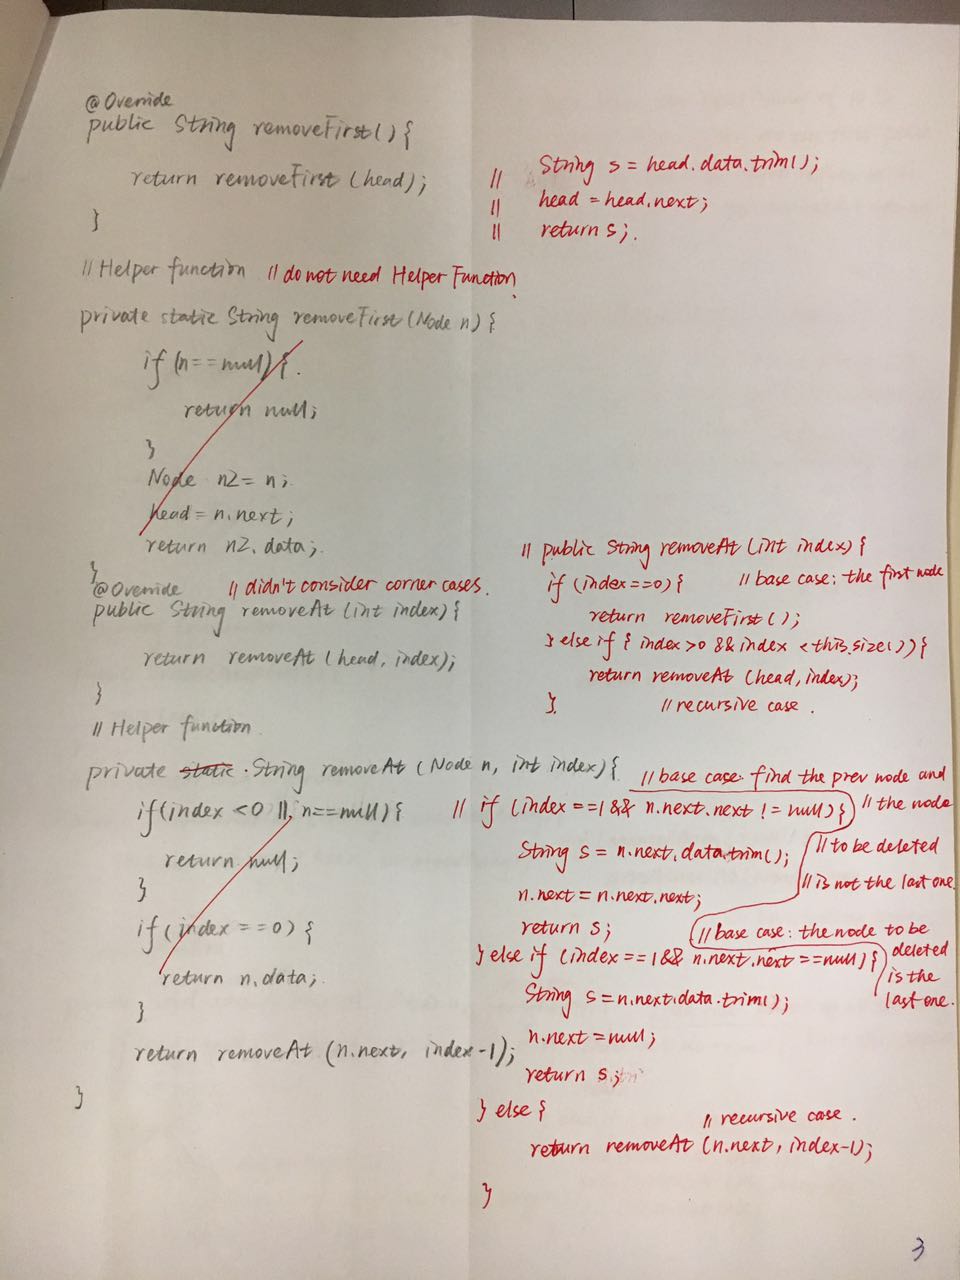 @Override
public String removeFirst() {
return removeFirst (head);
}
// String s = head.data.trim();
// head = head.next;
// return s;
// Helper function // do not need Helper Function.
private static String removeFirst (Node n) {
if (n==null) {
return null;
}
Node n2 = n;
head = n.next;
return n2.data;
}
@Override // didn't consider corner cases.
public String removeAt (int index) {
return removeAt (head, index);
}
// public String removeAt (int index) {
if (index==0) { // base case: the first node
return removeFirst ();
} else if { index >0 && index < this.size()) {
return removeAt (head, index);
} // recursive case.
// Helper function
private static String removeAt (Node n, int index) {
if (index <0 || n==null) {
return null;
}
if (index ==0) {
return n.data;
}
return removeAt (n.next, index-1);
}
// base case: find the prev node and
// if (index ==1 && n.next.next != null) { // the node
String s = n.next.data.trim(); // to be deleted
n.next = n.next.next; // is not the last one.
return s; // base case: the node to be
} else if (index ==1 && n.next.next ==null) { deleted
is the
String s = n.next.data.trim(); last one.
n.next = null;
return s;
} else { // recursive case.
return removeAt (n.next, index-1);
}
3